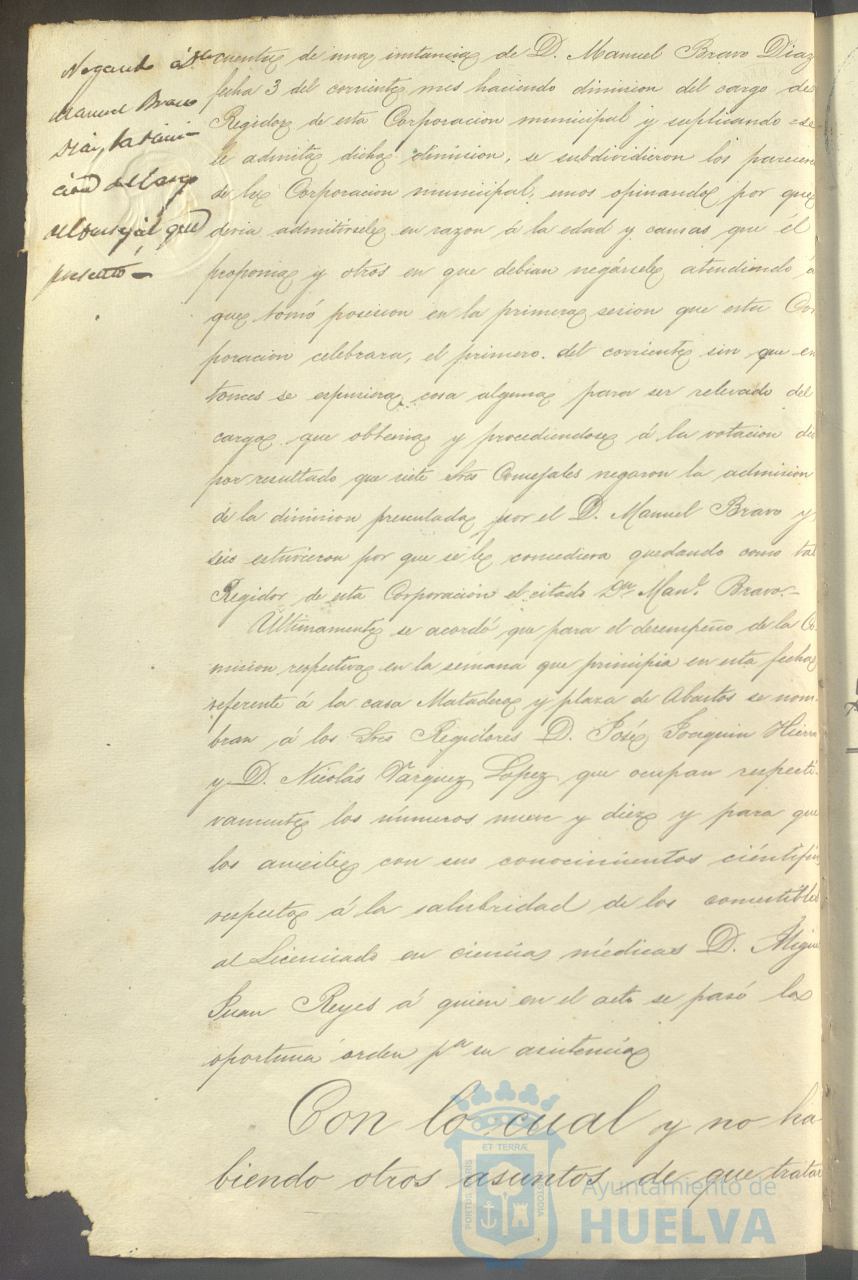 Negando á Dn
Manuel Bravo
Diaz, la dimi-
ción del cargo
de Concejal que
presentó.
cuenta de una instancia de D. Manuel Bravo Diaz
fecha 3 del corriente mes haciendo dimision del cargo de
Regidor de esta Corporacion municipal y suplicando se
le admita dicha dimision, se subdividieron los parecere
de la Corporacion municipal, unos opinando por que
devia admitirsele en razon á la edad y causas que él
proponia y otros en que debian negársele atendiendo á
que tomó posesion en la primera sesion que esta Cor
poracion celebrara, el primero del corriente sin que en
tonces se espusiera cosa alguna para ser relevado del
cargo que obtenia y procediendose á la votacion dió
por resultado que siete Sres Concejales negaron la admision
de la dimision presentada por el D. Manuel Bravo y
seis estuvieron por que se le concediera quedando como tal
Regidor de esta Corporación el citado Dn Manl. Bravo.-
Ultimamente se acordó que para el desempeño de la Co
mision respectiva en la semana que principia en esta fecha
referente á la casa Matadero y plaza de Abastos se nom-
bran á los Sres Regidores D. José Joaquin Hierro
y D. Nicolás Vazquez Lopez que ocupan respecti-
vamente los números nueve y diez y para que
los ausilie con sus conocimientos cientific
respecto á la salubridad de los comestibles
al Licenciado en ciencias médicas D. Migue
Juan Reyes á quien en el acto se pasó la
oportuna orden pa su asistencia
Con lo cual y no ha
biendo otros asuntos de que tratar
ET TERRÆ
PORTUS MARIS
CUSTODIA
Ayuntamiento de
HUELVA